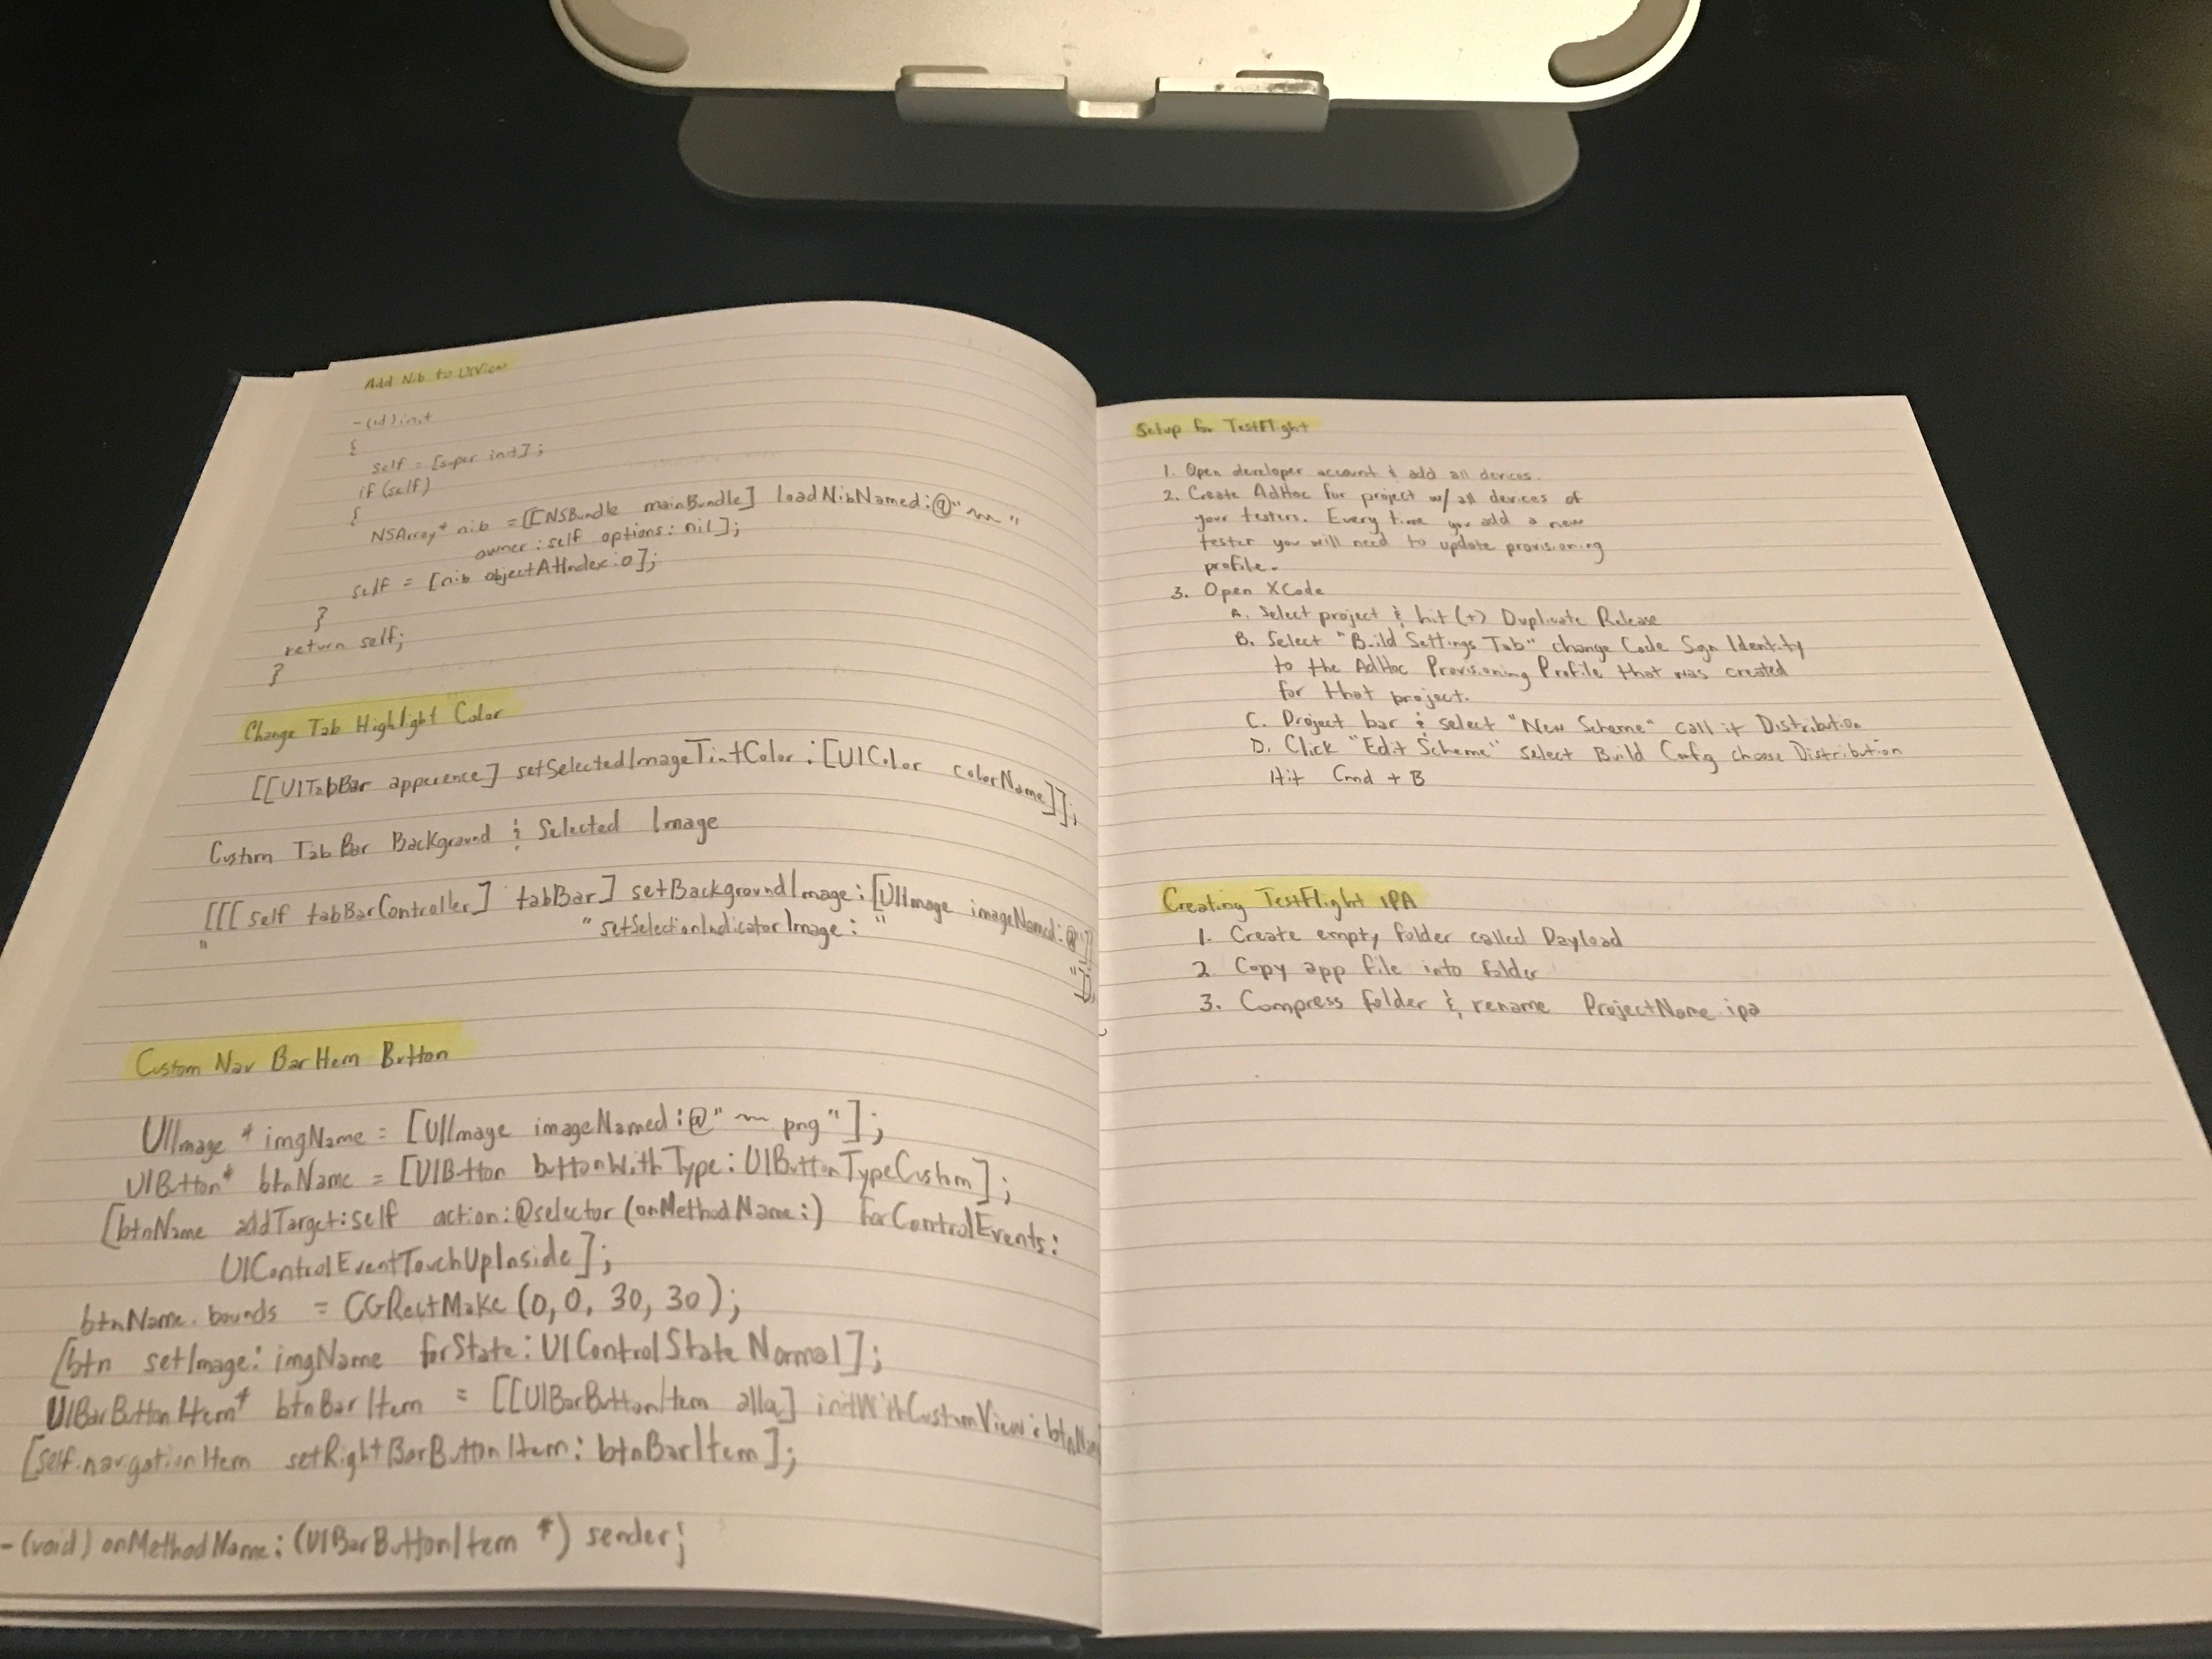 Add Nib to UIView
-(id)init
{
self = [super init];
if (self)
{
NSArray* nib = [[NSBundle mainBundle] loadNibNamed:@"~"
owner:self options:nil];
self = [nib objectAtIndex:0];
}
return self;
}
Change Tab Highlight Color
[[UITabBar apperence] setSelectedImageTintColor:[UIColor colorName]];
Custom Tab Bar Background & Selected Image
[[[self tabBarController] tabBar] setBackgroundImage:[UIImage imageNamed:@""]];
" " setSelectionIndicatorImage: "
Custom Nav BarItem Button
UIImage * imgName = [UIImage imageNamed:@"~ png"];
UIButton* btnName = [UIButton buttonWithType:UIButtonTypeCustom];
[btnName addTarget:self action:@selector(onMethodName:) forControlEvents:
UIControlEventTouchUpInside];
btnName.bounds = CGRectMake(0, 0, 30, 30);
[btn setImage: imgName forState:UIControlStateNormal];
UIBarButtonItem* btnBarItem = [[UIBarButtonItem alloc] initWithCustomView:btnName
[self.navigationItem setRightBarButtonItem: btnBarItem];
-(void) onMethodName:(UIBarButtonItem *) sender;
Setup for TestFlight
1. Open developer account & add all devices.
2. Create AdHoc for project w/ all devices of
your testers. Every time you add a new
tester you will need to update provisioning
profile.
3. Open XCode
A. Select project & hit (+) Duplicate Release
B. Select "Build Settings Tab" change Code Sign Identity
to the AdHoc Provisioning Profile that was created
for that project.
C. Project bar & select "New Scheme" call it Distribution
D. Click "Edit Scheme" select Build Config choose Distribution
Hit Cmd + B
Creating TestFlight IPA
1. Create empty folder called Payload
2 Copy app file into folder
3. Compress folder & rename ProjectName.ipa